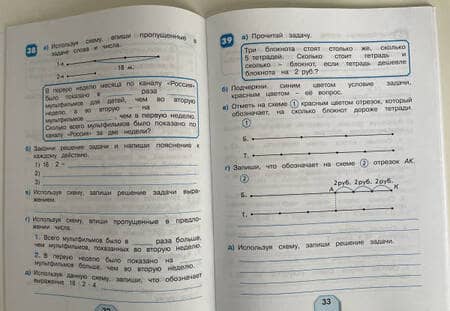 38 а) Используя схему, впиши пропущенные в
задаче слова и числа.
1-я
18 м.
2-я
В первую неделю месяца по каналу «Россия»
было показано в раза
мультфильмов для детей, чем во вторую
неделю, а во вторую — на
мультфильмов чем в первую неделю.
Сколько всего мультфильмов было показано по
каналу «Россия» за две недели?
б) Закончи решение задачи и напиши пояснение к
каждому действию.
1) 18 : 2 =
2)
3)
в) Используя схему, запиши решение задачи выра-
жением.
г) Используя схему, впиши пропущенные в предло-
жении числа.
1. Всего мультфильмов было в раза больше,
чем мультфильмов, показанных во вторую неделю.
2. В первую неделю было показано на
мультфильмов больше, чем во вторую неделю.
д) Используя данную схему, запиши, что обозначает
выражение 18 : 2 · 4.
32
39 а) Прочитай задачу.
Три блокнота стоят столько же, сколько
5 тетрадей. Сколько стоит тетрадь и
сколько – блокнот, если тетрадь дешевле
блокнота на 2 руб.?
б) Подчеркни синим цветом условие задачи,
красным цветом – её вопрос.
в) Отметь на схеме 1 красным цветом отрезок, который
обозначает, на сколько блокнот дороже тетради.
1
Б.
Т.
г) Запиши, что обозначает на схеме 2 отрезок АК.
2
2руб. 2руб. 2руб.
Б.
А
К
т.
д) Используя схему, запиши решение задачи.
33